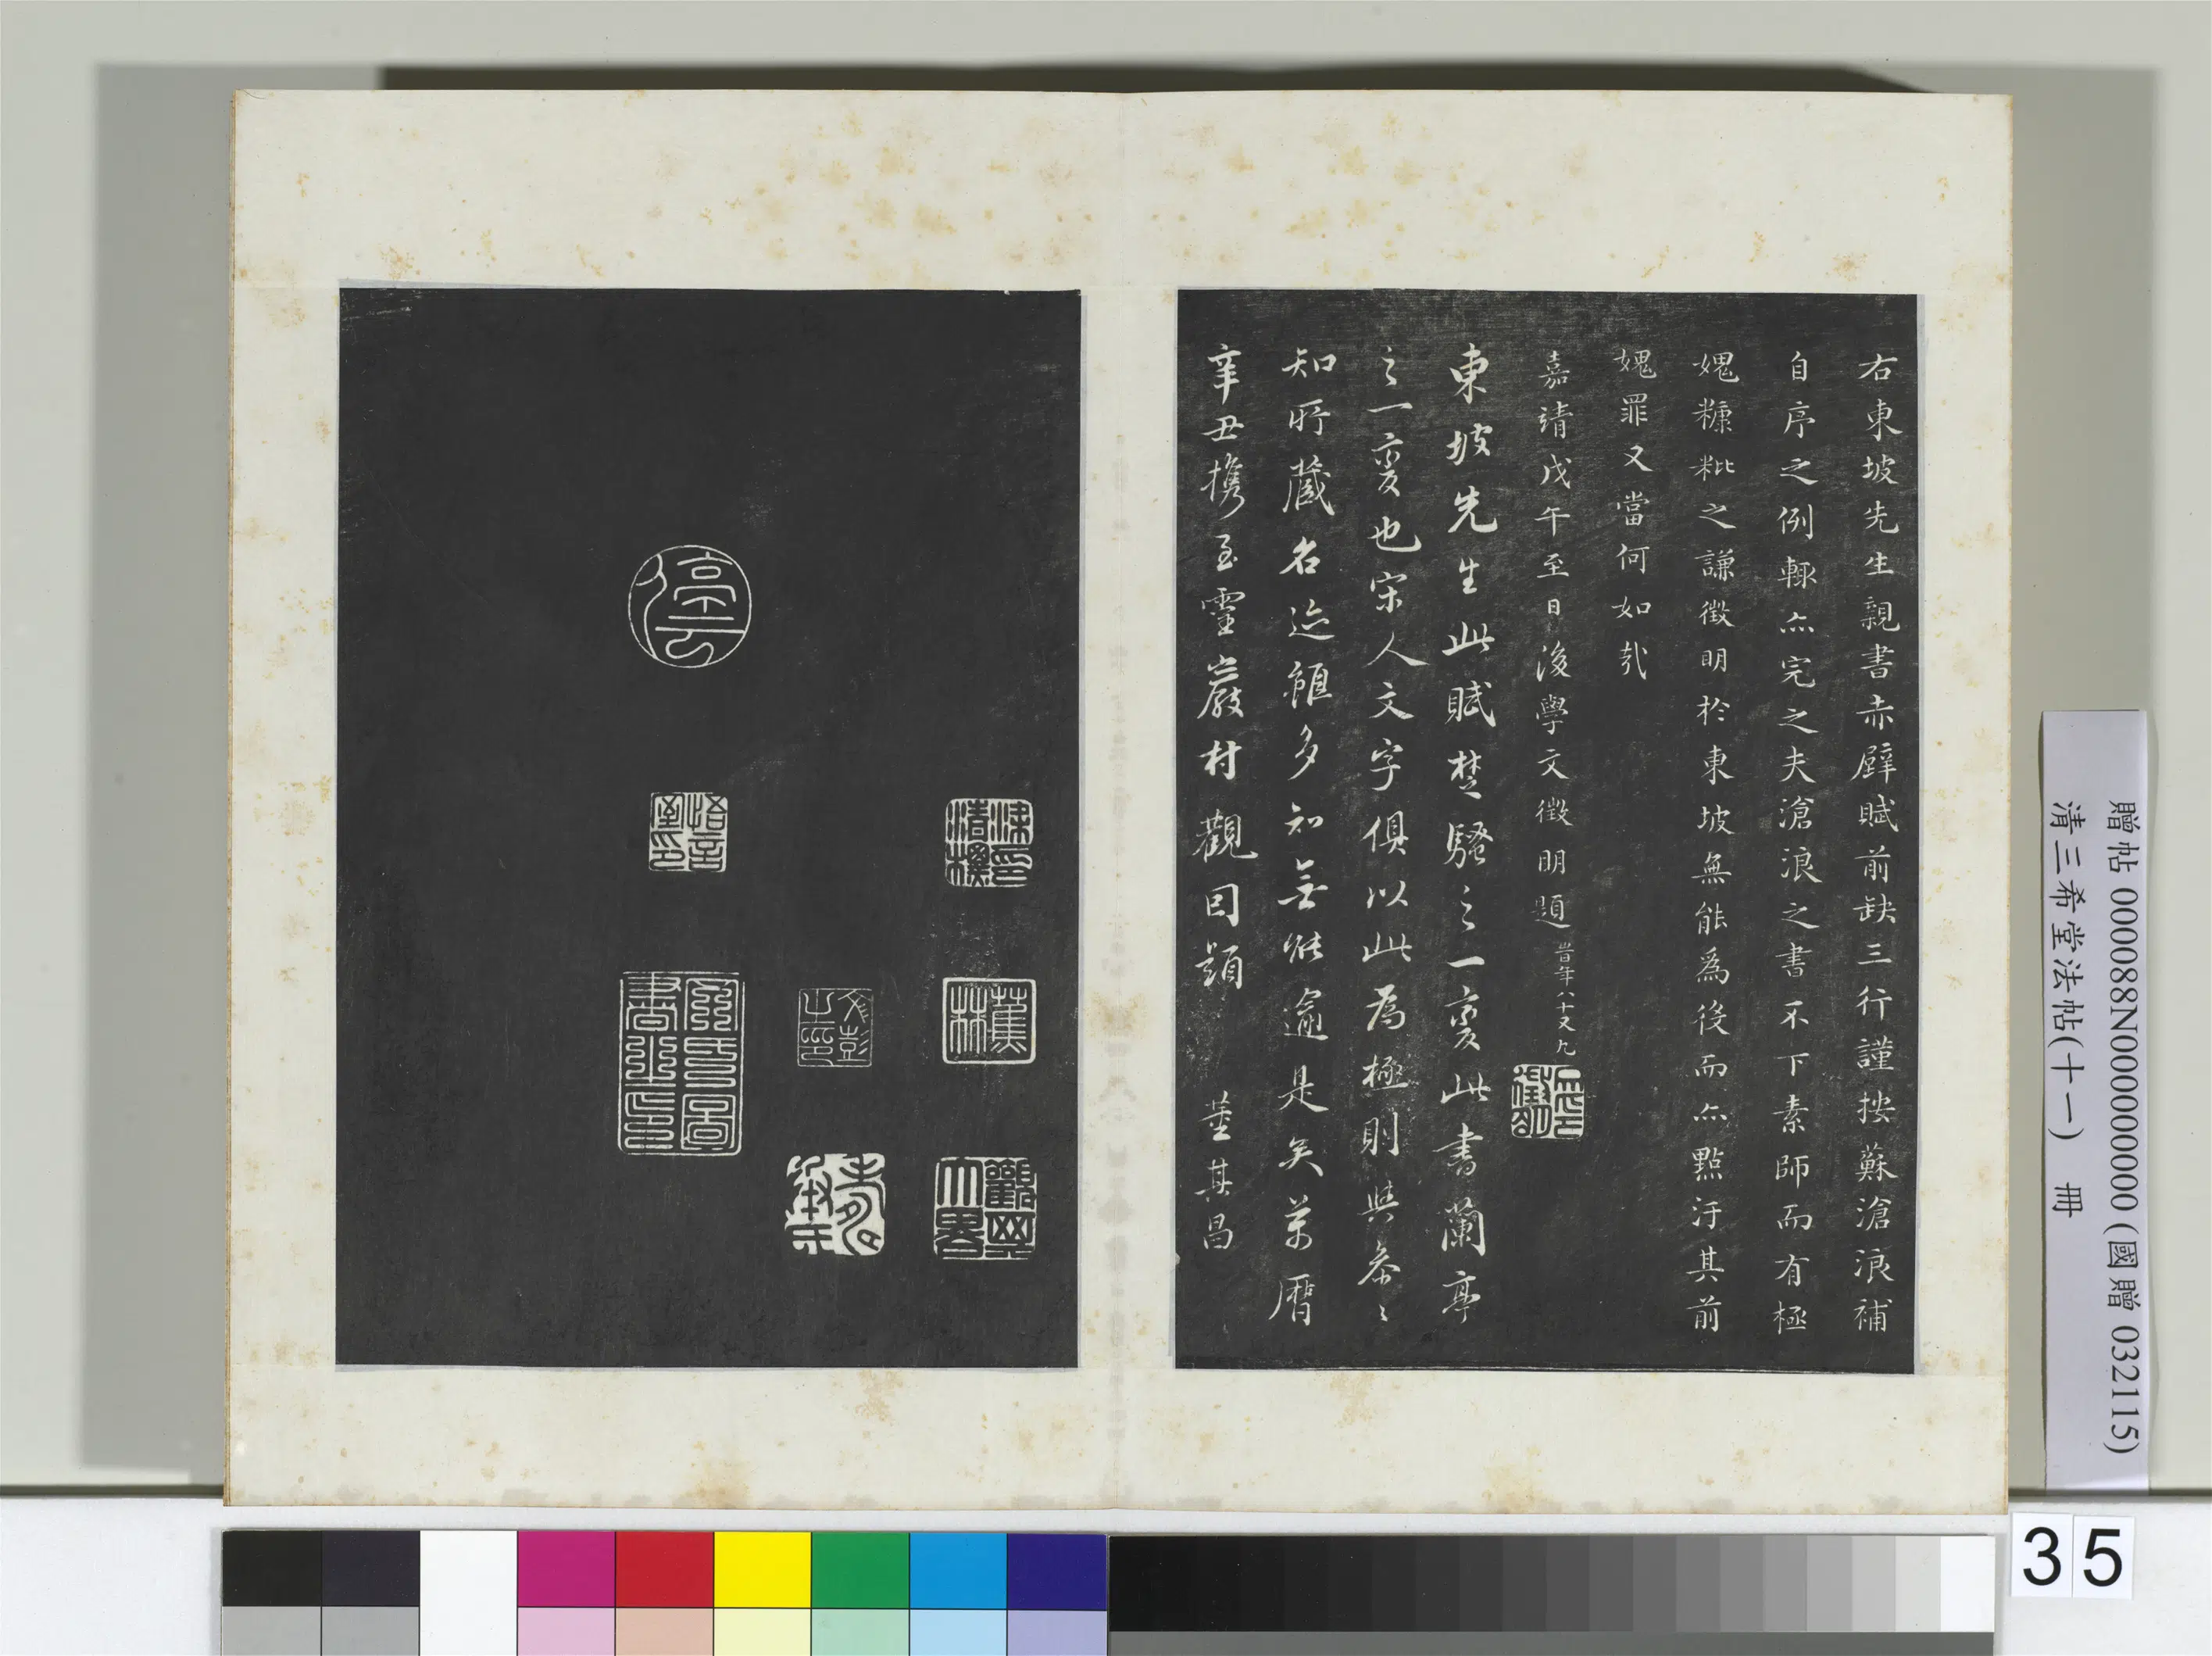 右東坡先生親書赤壁賦前缺三行謹按蘇滄浪補
自序之例輒亦完之夫滄浪之書不下素師而有極
媿糠粃之謙徵明於東坡無能為後而亦點汙其前
媿罪又當何如哉
嘉靖戊午至日後學文徵明題
時年八十又九
東坡先生此賦楚騷之一變此書蘭亭
之一變也宋人文字俱以此為極則與參參
知所藏名迹雖多知無能逾是矣萬曆
辛丑攜至靈巖村觀因題 董其昌
停云
蕉林
觀其大略
文彭之印
贈帖 000088N000000000 (國贈 032115)
清三希堂法帖(十一) 冊
35